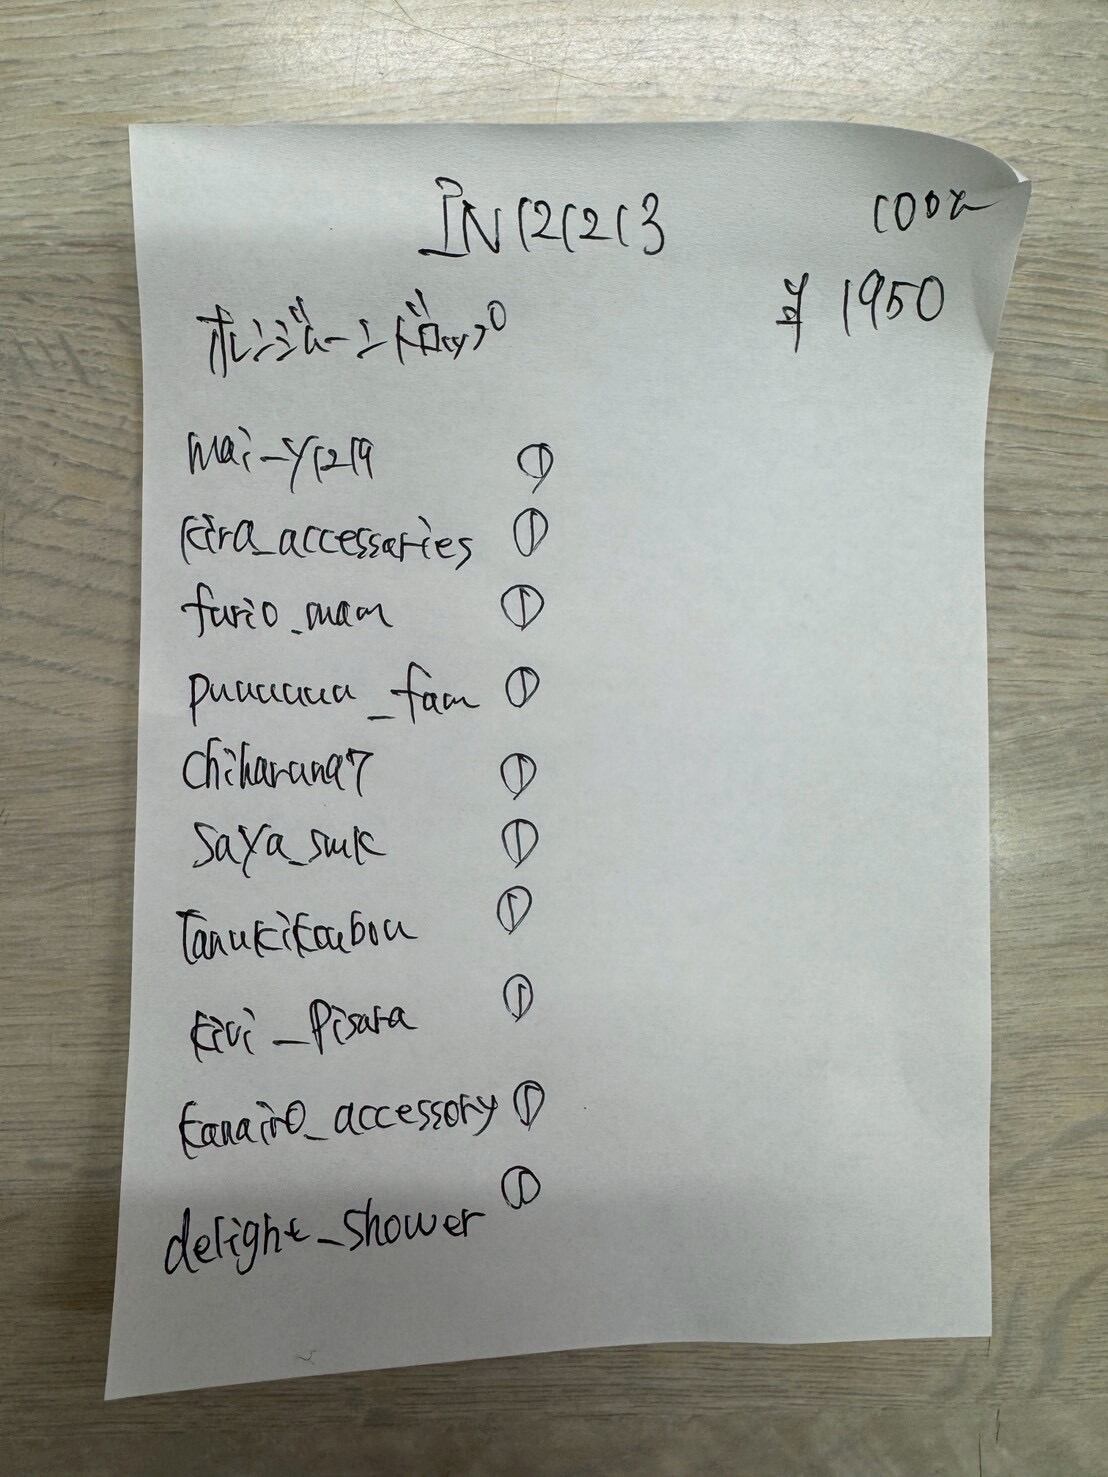 IN121213
100%
¥1950
ボンジュールドロップ
mai_y1219 ①
kira_accessaries ①
furio_mam ①
puuuuuu_fam ①
chiharuna7 ①
saya_smk ①
Tanukikoubou ①
kivi_pisara ①
kanairo_accessory ①
delight_shower ①